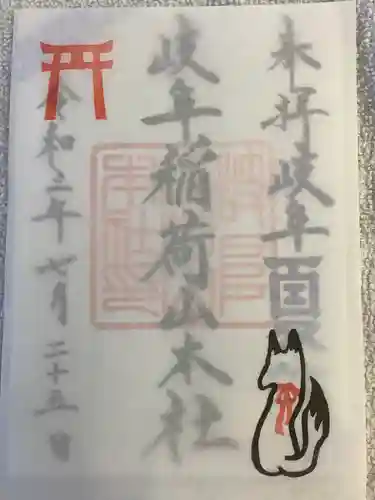 来拝岐阜百国
岐阜稲荷山本社
令和三年七月二十五日